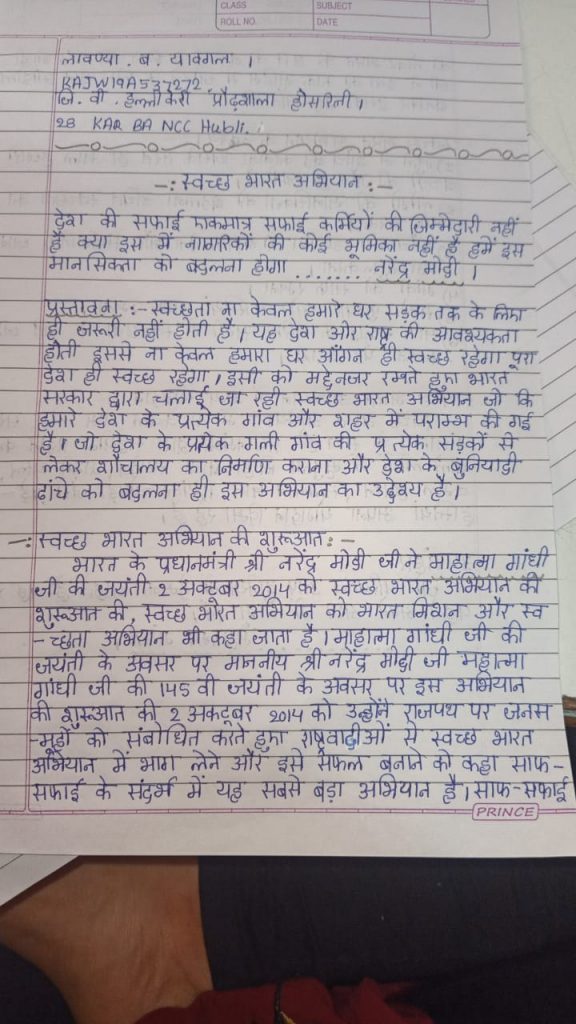 CLASS
SUBJECT
ROLL NO.
DATE
लावण्या . ब . यावगल ।
KAJW19A537272
जि. वी. हल्लीकेरी प्रौढशाला होसरित्ती।
28 KAR BA NCC Hubli.
-: स्वच्छ भारत अभियान :-
देश की सफाई एकमात्र सफाई कर्मियों की जिम्मेदारी नहीं
है क्या इस में नागरिकों की कोई भूमिका नहीं है हमें इस
मानसिकता को बदलना होगा ....... नरेंद्र मोदी ।
प्रस्तावना :- स्वच्छता ना केवल हमारे घर सड़क तक के लिए
ही जरूरी नहीं होती है। यह देश और राष्ट्र की आवश्यकता
होती इससे ना केवल हमारा घर आँगन ही स्वच्छ रहेगा पूरा
देश ही स्वच्छ रहेगा। इसी को मद्देनजर रखते हुए भारत
सरकार द्वारा चलाई जा रही स्वच्छ भारत अभियान जो कि
हमारे देश के प्रत्येक गांव और शहर में प्रारम्भ की गई
है। जो देश के प्रत्येक गली गांव की प्रत्येक सड़कों से
लेकर शौचालय का निर्माण कराना और देश के बुनियादी
ढांचे को बदलना ही इस अभियान का उद्देश्य है।
-: स्वच्छ भारत अभियान की शुरूआत :-
भारत के प्रधानमंत्री श्री नरेंद्र मोदी जी ने माहात्मा गांधी
जी की जयंती 2 अक्टूबर 2014 को स्वच्छ भारत अभियान की
शुरूआत की, स्वच्छ भारत अभियान को भारत मिशन और स्व
-च्छता अभियान भी कहा जाता है। माहात्मा गांधी जी की
जयंती के अवसर पर माननीय श्री नरेंद्र मोदी जी महात्मा
गांधी जी की 145 वी जयंती के अवसर पर इस अभियान
की शुरूआत की 2 अकटूबर 2014 को उन्होंने राजपथ पर जनस
-मूहों को संबोधित करते हुए राष्ट्रवादीओं से स्वच्छ भारत
अभियान में भाग लेने और इसे सफल बनाने को कहा साफ-
सफाई के संदर्भ में यह सबसे बड़ा अभियान है। साफ-सफाई
PRINCE